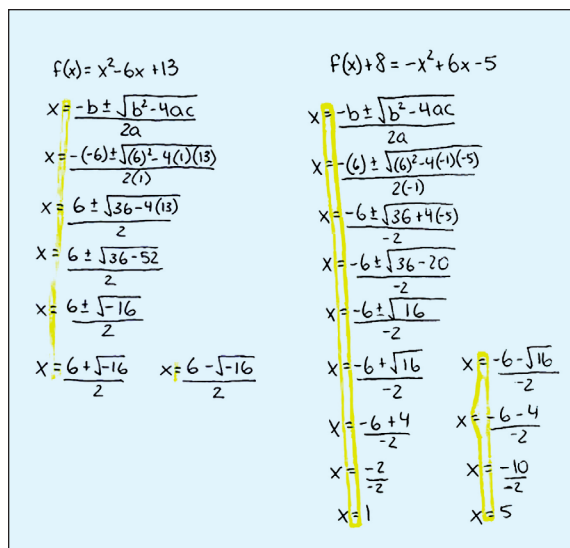 f(x) = x²-6x+13
x = -b ± √b² - 4ac / 2a
x = -(-6) ± √(6)² - 4(1)(13) / 2(1)
x = 6 ± √36-4(13) / 2
x = 6 ± √36-52 / 2
x = 6 ± √-16 / 2
x = 6 + √-16 / 2
x = 6 - √-16 / 2
f(x)+8 = -x²+6x-5
x = -b ± √b² - 4ac / 2a
x = -(6) ± √(6)² - 4(-1)(-5) / 2(-1)
x = -6 ± √36+4(-5) / -2
x = -6 ± √36-20 / -2
x = -6 ± √16 / -2
x = -6 + √16 / -2
x = -6 + 4 / -2
x = -2 / -2
x = 1
x = -6 - √16 / -2
x = -6 - 4 / -2
x = -10 / -2
x = 5